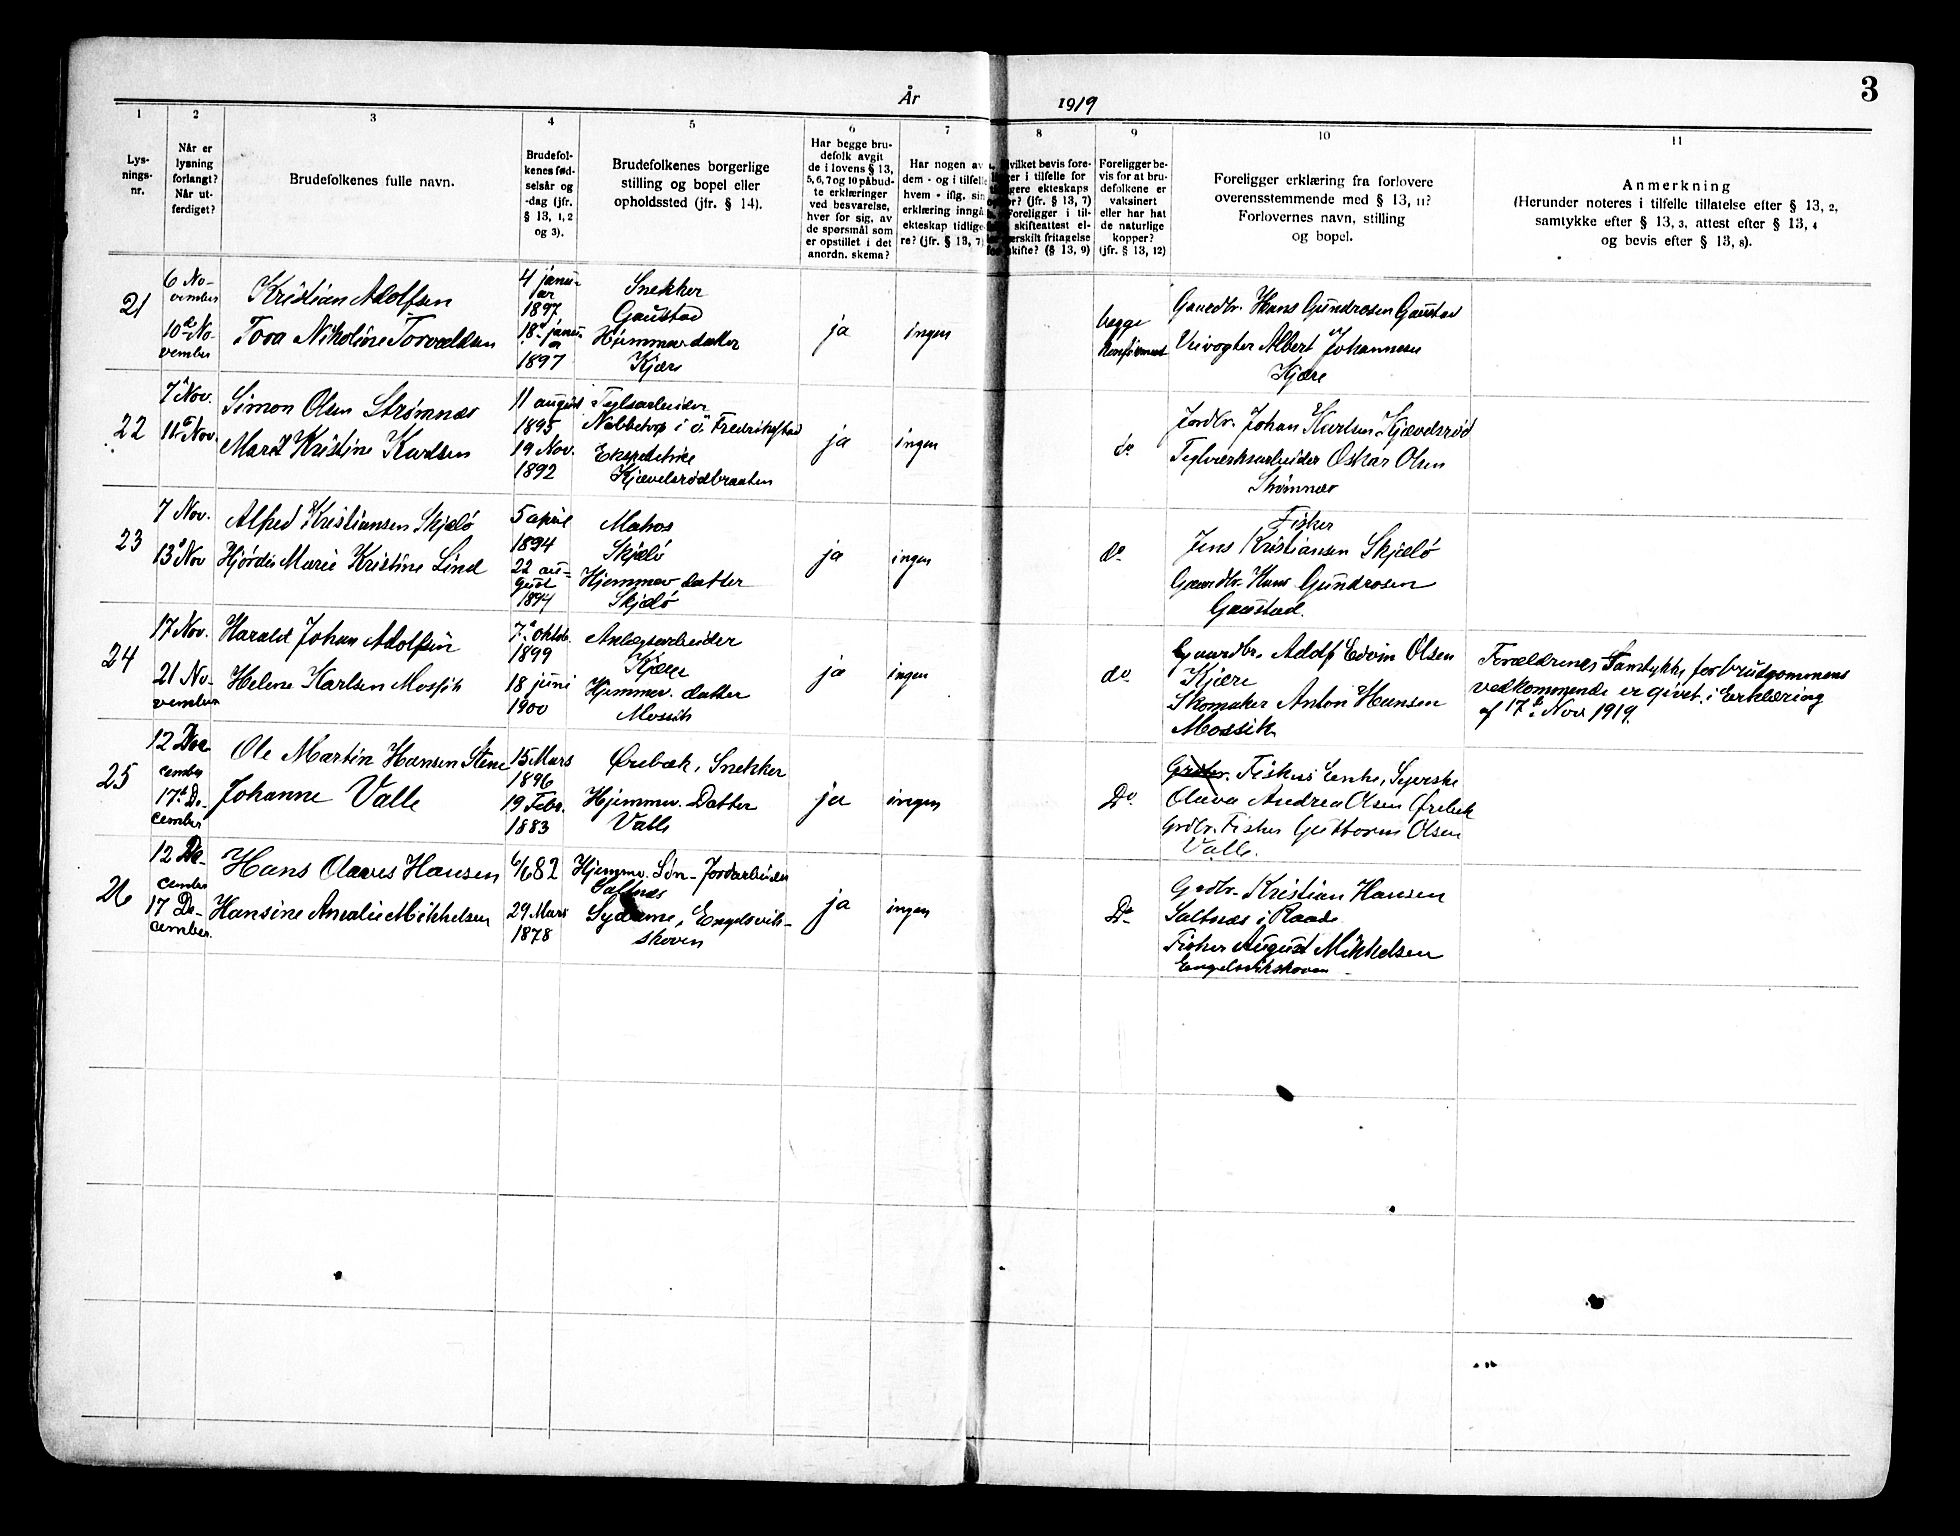 År 1919
3
1
2
3
4
5
6
7
8
9
10
11
Lys-
nings-
nr.
Når er
lysning
forlangt?
Når ut-
ferdiget?
Brudefolkenes fulle navn.
Brudefol-
kenes fød-
selsår og
-dag (jfr.
§ 13, 1, 2
og 3).
Brudefolkenes borgerlige
stilling og bopel eller
opholdssted (jfr. § 14).
Har begge bru-
defolk avgit
de i lovens § 13,
5, 6, 7 og 10 påbud-
te erklæringer
ved besvarelse,
hver for sig, av
de spørsmål som
er opstillet i det
anordn. skema?
Har nogen av
dem - og i tilfelle
hvem - iflg. sin
erklæring inngå
ekteskap tidlige-
re? (jfr. § 13, 7)
vilket bevis fore-
er i tilfelle for
gere ekteskaps
? (jfr. § 13, 7)
Foreligger i til-
skifteattest el-
erskilt fritagelse
skifte? (§ 13, 9)
Foreligger be-
vis for at bru-
defolkene er
vaksinert
eller har hat
de naturlige
kopper?
(jfr. § 13, 12)
Foreligger erklæring fra forlovere
overensstemmende med § 13, 11?
Forlovernes navn, stilling
og bopel.
Anmerkning
(Herunder noteres i tilfelle tillatelse efter § 13, 2,
samtykke efter § 13, 3, attest efter § 13, 4
og bevis efter § 13, 8).
21
6 No-
vember
10de No-
vember
Kristian Adolfsen
Tora Nikoline Torvaldsen
4 janu-
ar
1897
18d janu-
ar
1897
Snekker
Gaustad
Hjemmev. datter
Kjære
ja
ingen
begge
konfirmert
Gaardbr. Hans Gundrosen Gaustad
Veivogter Albert Johannesen
Kjære
22
7d Nov.
11te Nov.
Simon Olsen Strømnæs
Marit Kristine Karlsen
11 august
1895
19 Nov.
1892
Teglarbeider
Nabbetorp i Ø. Fredrikstad
Kjævelsrødbraaten
ja
ingen
do
Jordbr. Johan Karlsen Kjævelsrød
Teglverksarbeider Oskar Olsen
Strømnæs
23
7 Nov.
13d Nov
Alfred Kristiansen Skjælø
Hjørdis Marie Kristine Lind
5 april
1894
22 au-
gust
1894
Matros
Skjælø
Hjemmev datter
Skjælø
ja
ingen
do
Fisker
Jens Kristiansen Skjælø
Gaardbr. Hans Gundrosen
Gaustad.
24
17 Nov.
21 No-
vember
Harald Johan Adolfsen
Helene Karlsen Mossik
7d oktob.
1899
18 juni
1900
Anlægsarbeider
Kjære
Hjemmev. datter
Mossik
ja
ingen
do
Gaardbr. Adolf Edvin Olsen
Kjære
Skomaker Anton Hansen
Mossik
Forældrenes Samtykke for brudgommens
vedkommende er givet i Erklæring
af 17de Nov 1919.
25
12 De-
cember
17de De-
cember
Ole Martin Hansen Stene
Johanne Valle
15 Mars
1896
19 Febr.
1883
Ørebæk, Snekker
Hjemmev. Datter
Valle
ja
ingen
Do
Grdbr. Fiskers Enke, Syerske
Olava Andrea Olsen Ørebæk
Grdbr. Fisker Guttorm Olsen
Valle.
26
12 De-
cember
17 De-
cember.
Hans Olaves Hansen
Hansine Amalie Mikkelsen
6/6 82
29 Mars
1878
Hjemmev. Søn - Jordarbeider
Saltnæs
Sydame, Engelsvik-
skoven
ja
ingen
Do
Grdbr. Kristian Hansen
Saltnæs i Raade.
Fisker August Mikkelsen
Engelsvikskoven